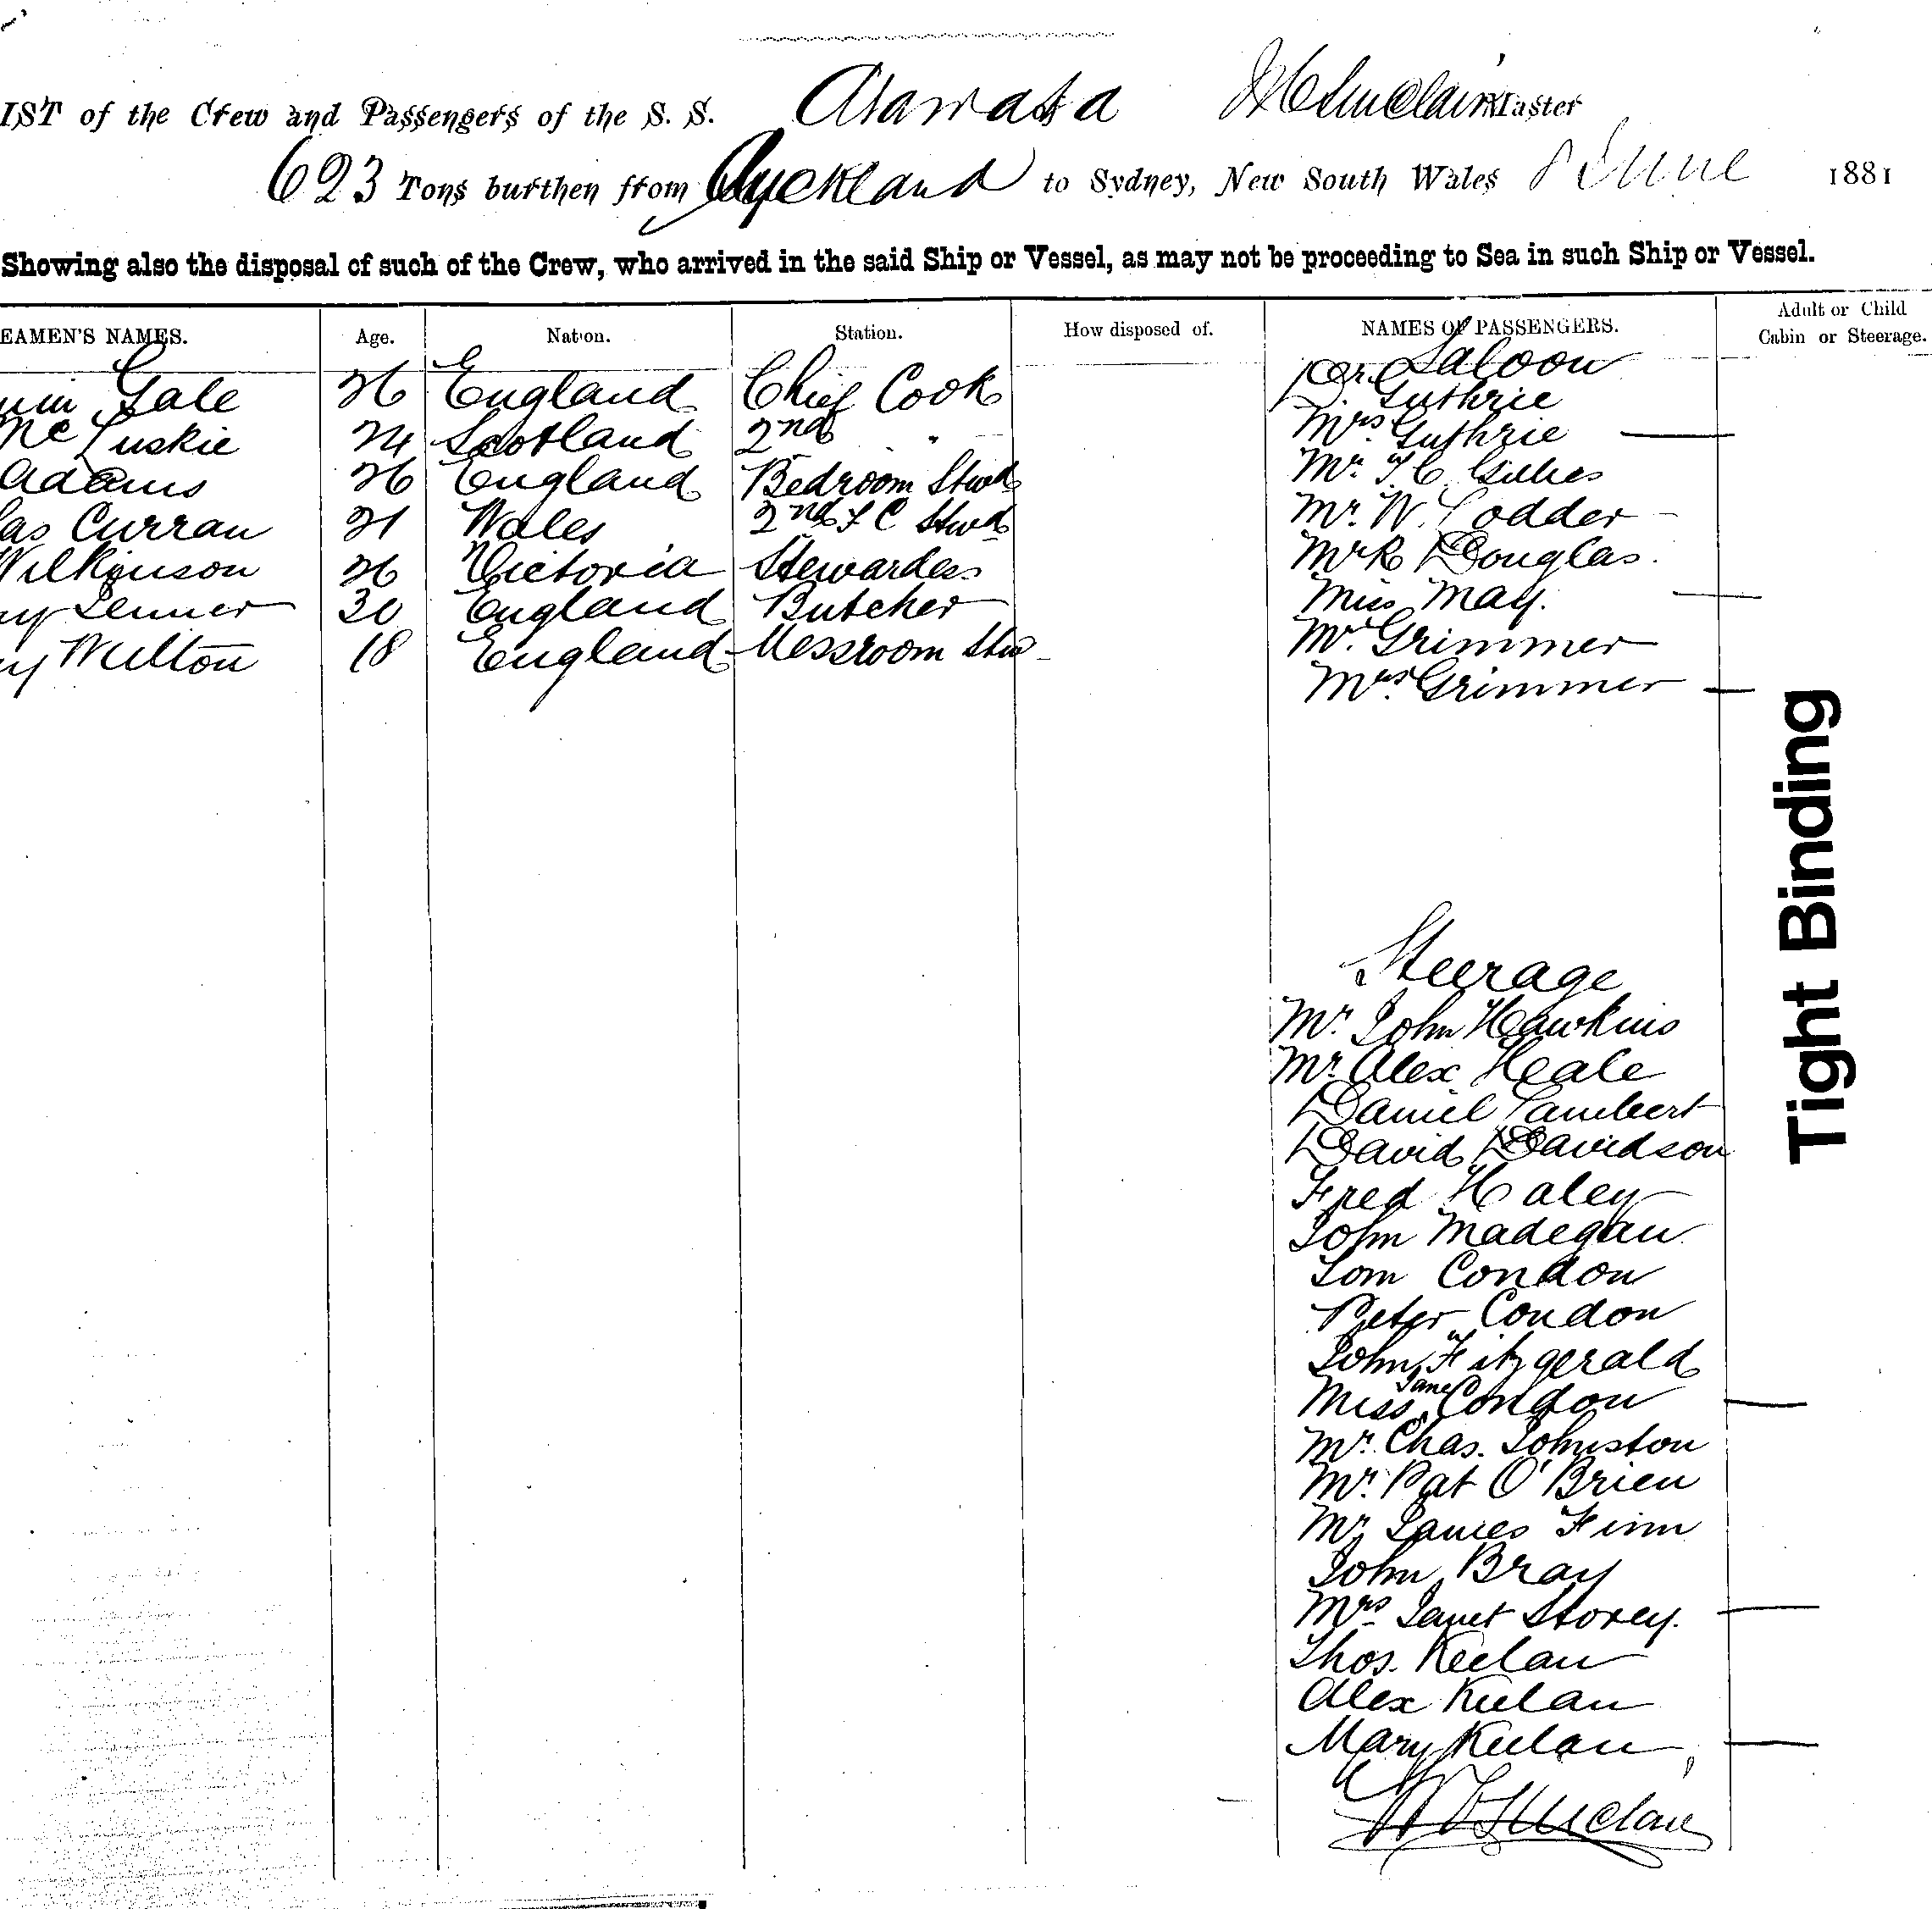 IST of the Crew and Passengers of the S. S. Arawata Sinclair Master
623 Tons burthen from Auckland to Sydney, New South Wales 8 June 1881
Showing also the disposal of such of the Crew, who arrived in the said Ship or Vessel, as may not be proceeding to Sea in such Ship or Vessel.
EAMEN'S NAMES. Age. Nation. Station. How disposed of. NAMES OF PASSENGERS. Adult or Child
Cabin or Steerage.
Saloon
Gale 26 England Chief Cook Dr. Guthrie
McLuskie 24 Scotland 2nd " Mrs. Guthrie
Adams 26 England Bedroom Stwd Mr. T. C. Gillies
as Curran 21 Wales 2nd F C Stwd Mr. W. Lodder
Wilkinson 26 Victoria Stewardess Mr R Douglas.
y Jenner 30 England Butcher Miss May.
y Wilton 18 England Messroom Stw Mr. Grimmer
Mrs. Grimmer
Tight Binding
Steerage
Mr. John Hawkins
Mr. Alex Heale
Daniel Lambert
David Davidson
Fred Haley
John Madegan
Tom Condon
Peter Condon
John Fitzgerald
Miss Jane Condon
Mr. Chas. Johnston
Mr. Pat O'Brien
Mr James Finn
John Bray
Mrs Janet Storey.
Thos. Keelan
Alex Keelan
Mary Keelan
Sinclair